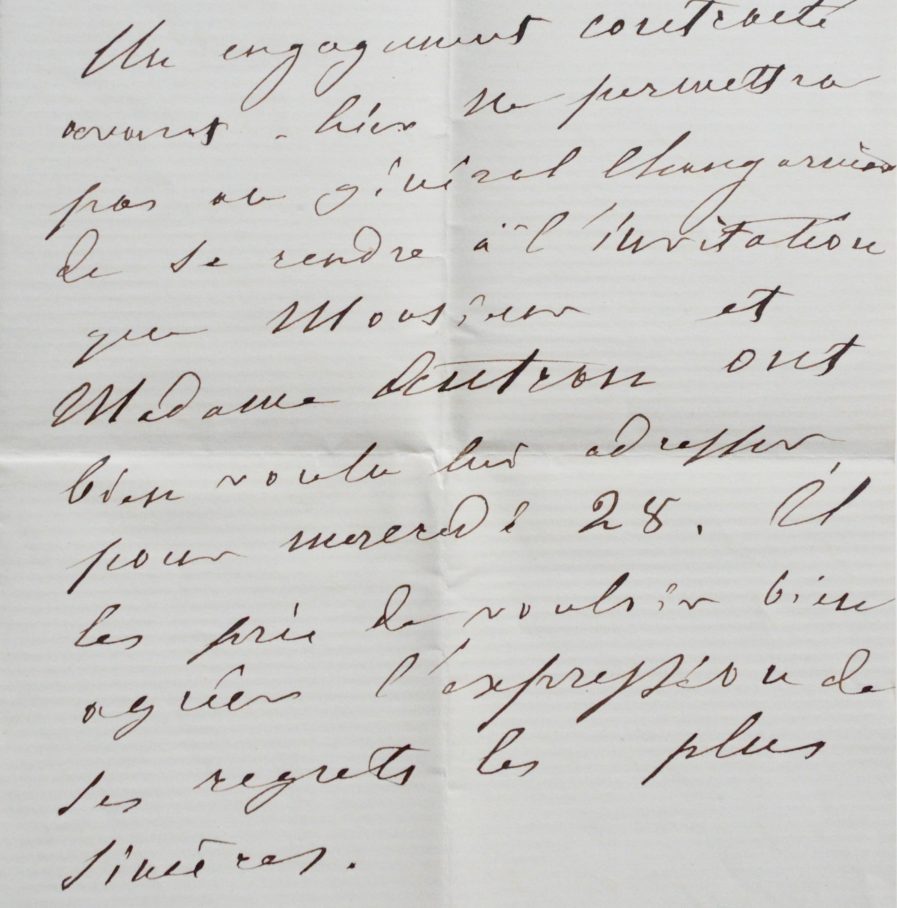 Un engagement contracté
avant-hier ne permettra
pas au général Changarnier
de se rendre à l'invitation
que Monsieur et
Madame ont
bien voulu lui adresser
pour mercredi 28. Il
les prie de vouloir bien
agréer l'expression de
ses regrets les plus
sincères.